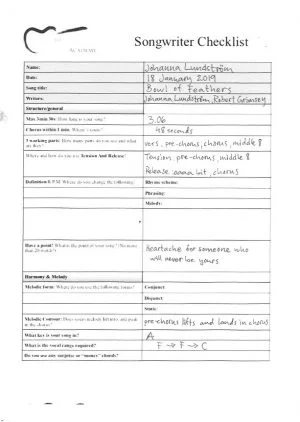 ACADEMY
Songwriter Checklist
Name: Johanna Lundström
Date: 18 January 2019
Song title: Bowl of Feathers
Writers: Johanna Lundström, Robert
Structure/general
Max 3min 30s: How long is your song? 3.06
Chorus within 1 min. Where's yours? 48 seconds
3 working parts: How many parts do you use and what are they? vers, pre-chorus, chorus, middle 8
Where and how do you use Tension And Release? Tension pre-chorus, middle 8
Release aaaa bit, chorus
Where do you change the following: Rhyme scheme:
Phrasing:
Melody:
Have a point? What is the point of your song? (No more than 20 words?) Heartache for someone who
will never be yours
Harmony & Melody
Melodic form: Where do you use the following forms? Conjunct:
Disjunct:
Static:
Melodic Contour: Does your melody lift into and peak in the chorus? pre-chorus lifts and lands in chorus
What key is your song in? A
What is the vocal range required? F → F → C
Do you use any surprise or "money" chords?